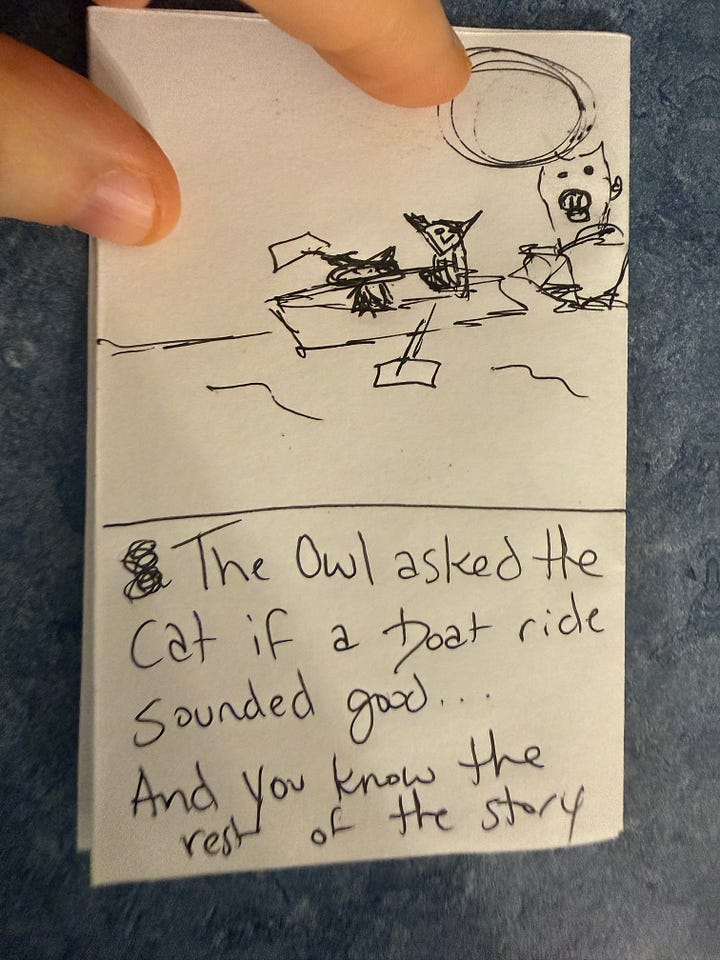 The Owl asked the
Cat if a boat ride
sounded good...
And you know the
rest of the story